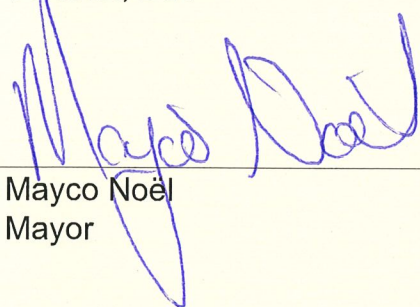 Mayco Noël
Mayco Noël
Mayor